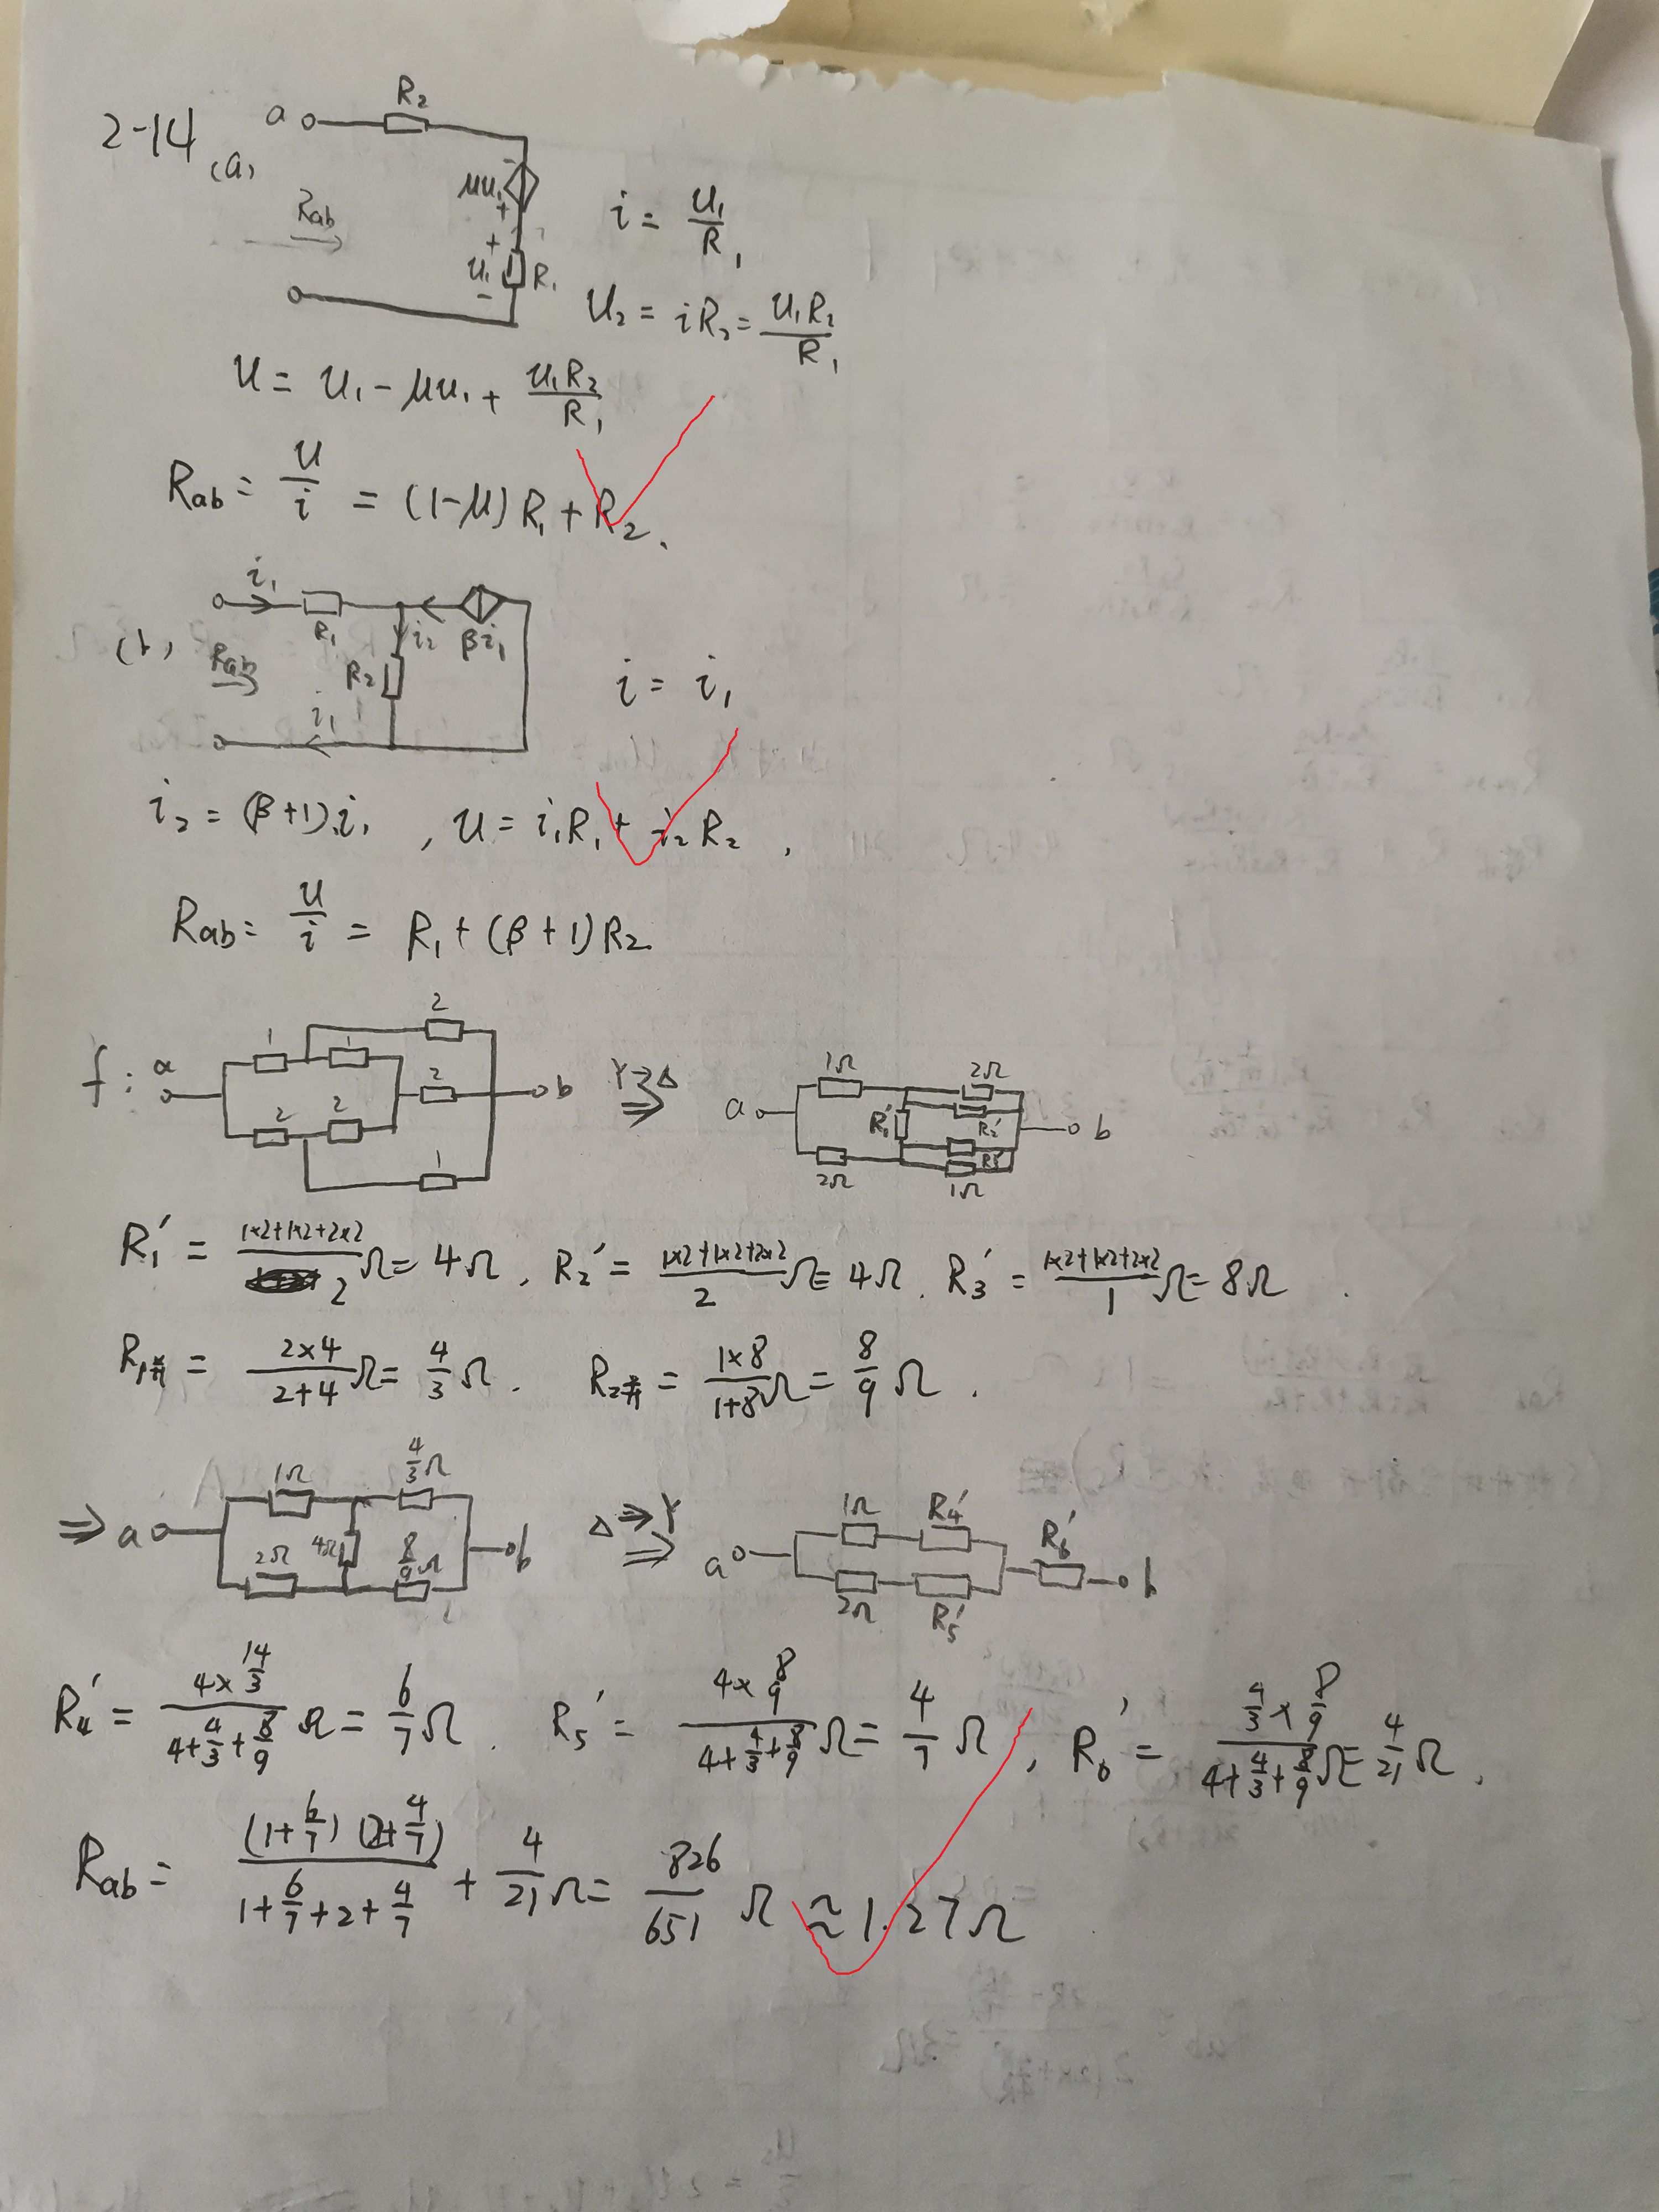 2-14 (a)
a R₂
μu₁ - +
Rab
+ u₁ - R₁
i = u₁/R₁
u₂ = iR₂ = u₁R₂/R₁
u = u₁ - μu₁ + u₁R₂/R₁
Rab = u/i = (1-μ)R₁ + R₂.
(b) i₁ R₁ i₂ βi₁
Rab R₂ i₁
i = i₁
i₂ = (β+1)i₁ , u = i₁R₁ + i₂R₂ ,
Rab = u/i = R₁ + (β+1)R₂
f: a 1 1 2 2 2 2 1 b
Y→Δ ⇒
a 1Ω 2Ω R₁' R₂' R₃' 2Ω 1Ω b
R₁' = (1×2+1×2+2×2)/2 Ω = 4Ω . R₂' = (1×2+1×2+2×2)/2 Ω = 4Ω . R₃' = (1×2+1×2+2×2)/1 Ω = 8Ω .
R₁并 = (2×4)/(2+4) Ω = 4/3 Ω . R₂并 = (1×8)/(1+8) Ω = 8/9 Ω .
⇒ a 1Ω 4/3Ω 2Ω 4Ω 8/9Ω b
Δ⇒Y ⇒
a 1Ω R₄' 2Ω R₅' R₆' b
R₄' = (4×14/3)/(4+4/3+8/9) Ω = 6/7 Ω . R₅' = (4×8/9)/(4+4/3+8/9) Ω = 4/7 Ω , R₆' = (4/3×8/9)/(4+4/3+8/9) Ω = 4/21 Ω ,
Rab = (1+6/7)(2+4/7)/(1+6/7+2+4/7) + 4/21 Ω = 826/651 Ω ≈ 1.27Ω